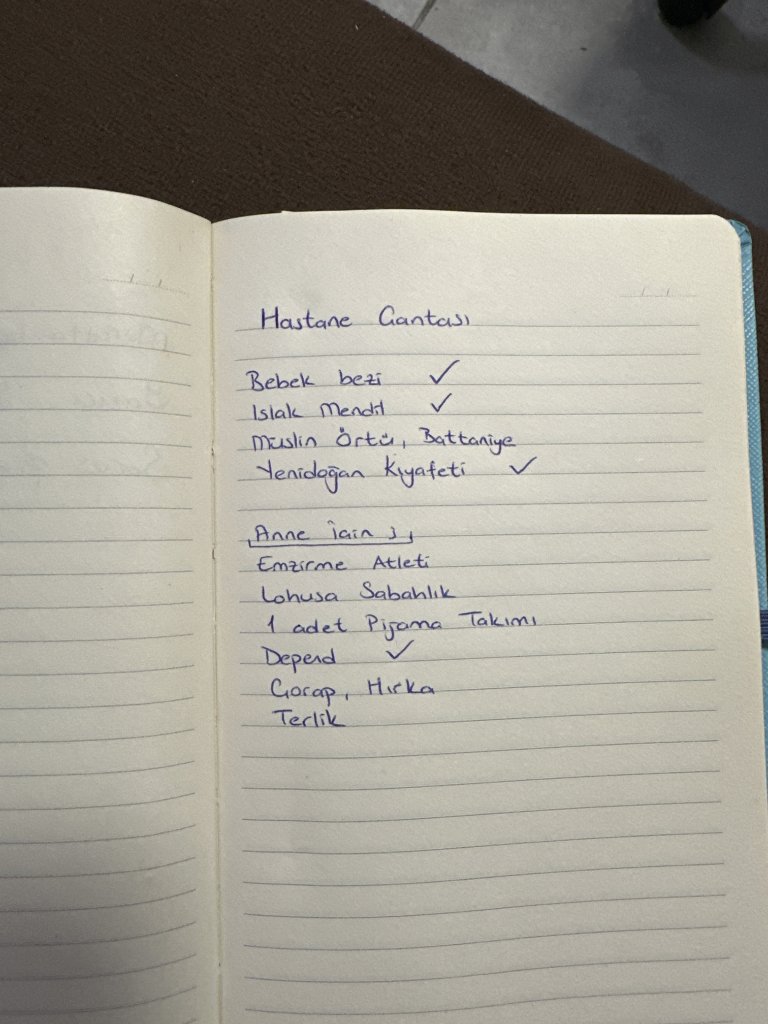 Hastane Çantası
Bebek bezi ✓
Islak Mendil ✓
Müslin Örtü, Battaniye
Yenidoğan Kıyafeti ✓
Anne için ;
Emzirme Atleti
Lohusa Sabahlık
1 adet Pijama Takımı
Depend ✓
Çorap, Hırka
Terlik